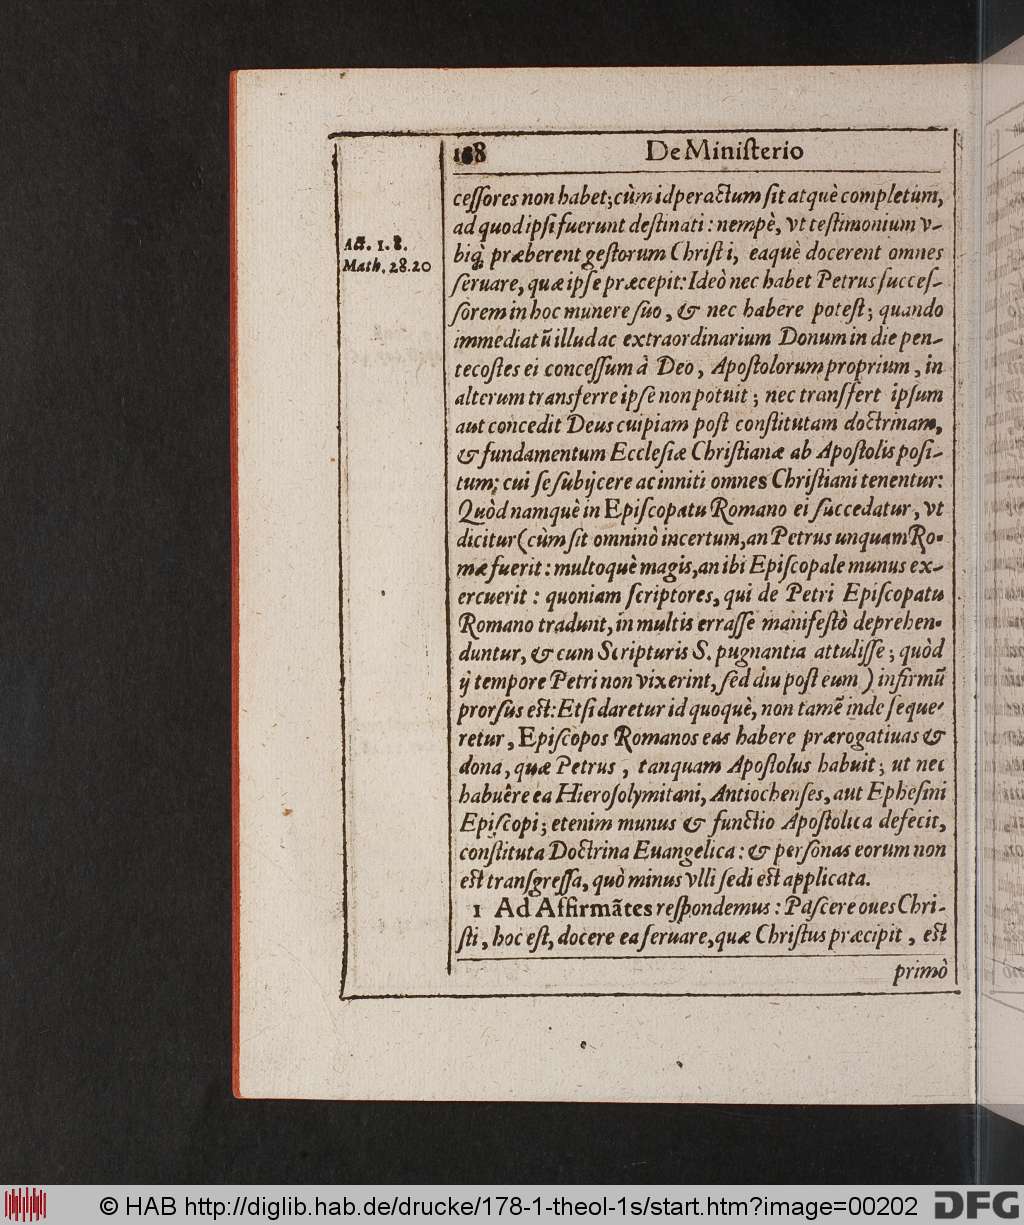 168 De Ministerio
Act. 1. 8.
Math. 28. 20
cessores non habet; cùm id peractum sit atquè completum,
ad quod ipsi fuerunt destinati: nempè, vt testimonium v-
biq; præberent gestorum Christi, eaquè docerent omnes
seruare, quæ ipse præcepit: Ideò nec habet Petrus succes-
sorem in hoc munere suo, & nec habere potest; quando
immediatũ illud ac extraordinarium Donum in die pen-
tecostes ei concessum à Deo, Apostolorum proprium, in
alterum transferre ipse non potuit; nec transfert ipsum
aut concedit Deus cuipiam post constitutam doctrinam,
& fundamentum Ecclesiæ Christianæ ab Apostolis posi-
tum; cui se subijcere ac inniti omnes Christiani tenentur:
Quòd namquè in Episcopatu Romano ei succedatur, vt
dicitur (cùm sit omninò incertum, an Petrus unquam Ro-
mæ fuerit: multoquè magis, an ibi Episcopale munus ex-
ercuerit: quoniam scriptores, qui de Petri Episcopatu
Romano tradunt, in multis errasse manifestò deprehen-
duntur, & cum Scripturis S. pugnantia attulisse; quòd
ij tempore Petri non vixerint, sed diu post eum) infirmũ
prorsus est: Etsi daretur id quoquè, non tamẽ inde seque-
retur, Episcopos Romanos eas habere prærogatiuas &
dona, quæ Petrus, tanquam Apostolus habuit; ut nec
habuêre ea Hierosolymitani, Antiochenses, aut Ephesini
Episcopi; etenim munus & functio Apostolica defecit,
constituta Doctrina Euangelica: & personas eorum non
est transgressa, quò minus vlli sedi est applicata.
1 Ad Affirmãtes respondemus: Pascere oues Chri-
sti, hoc est, docere ea seruare, quæ Christus præcipit, est
primò
© HAB http://diglib.hab.de/drucke/178-1-theol-1s/start.htm?image=00202
DFG